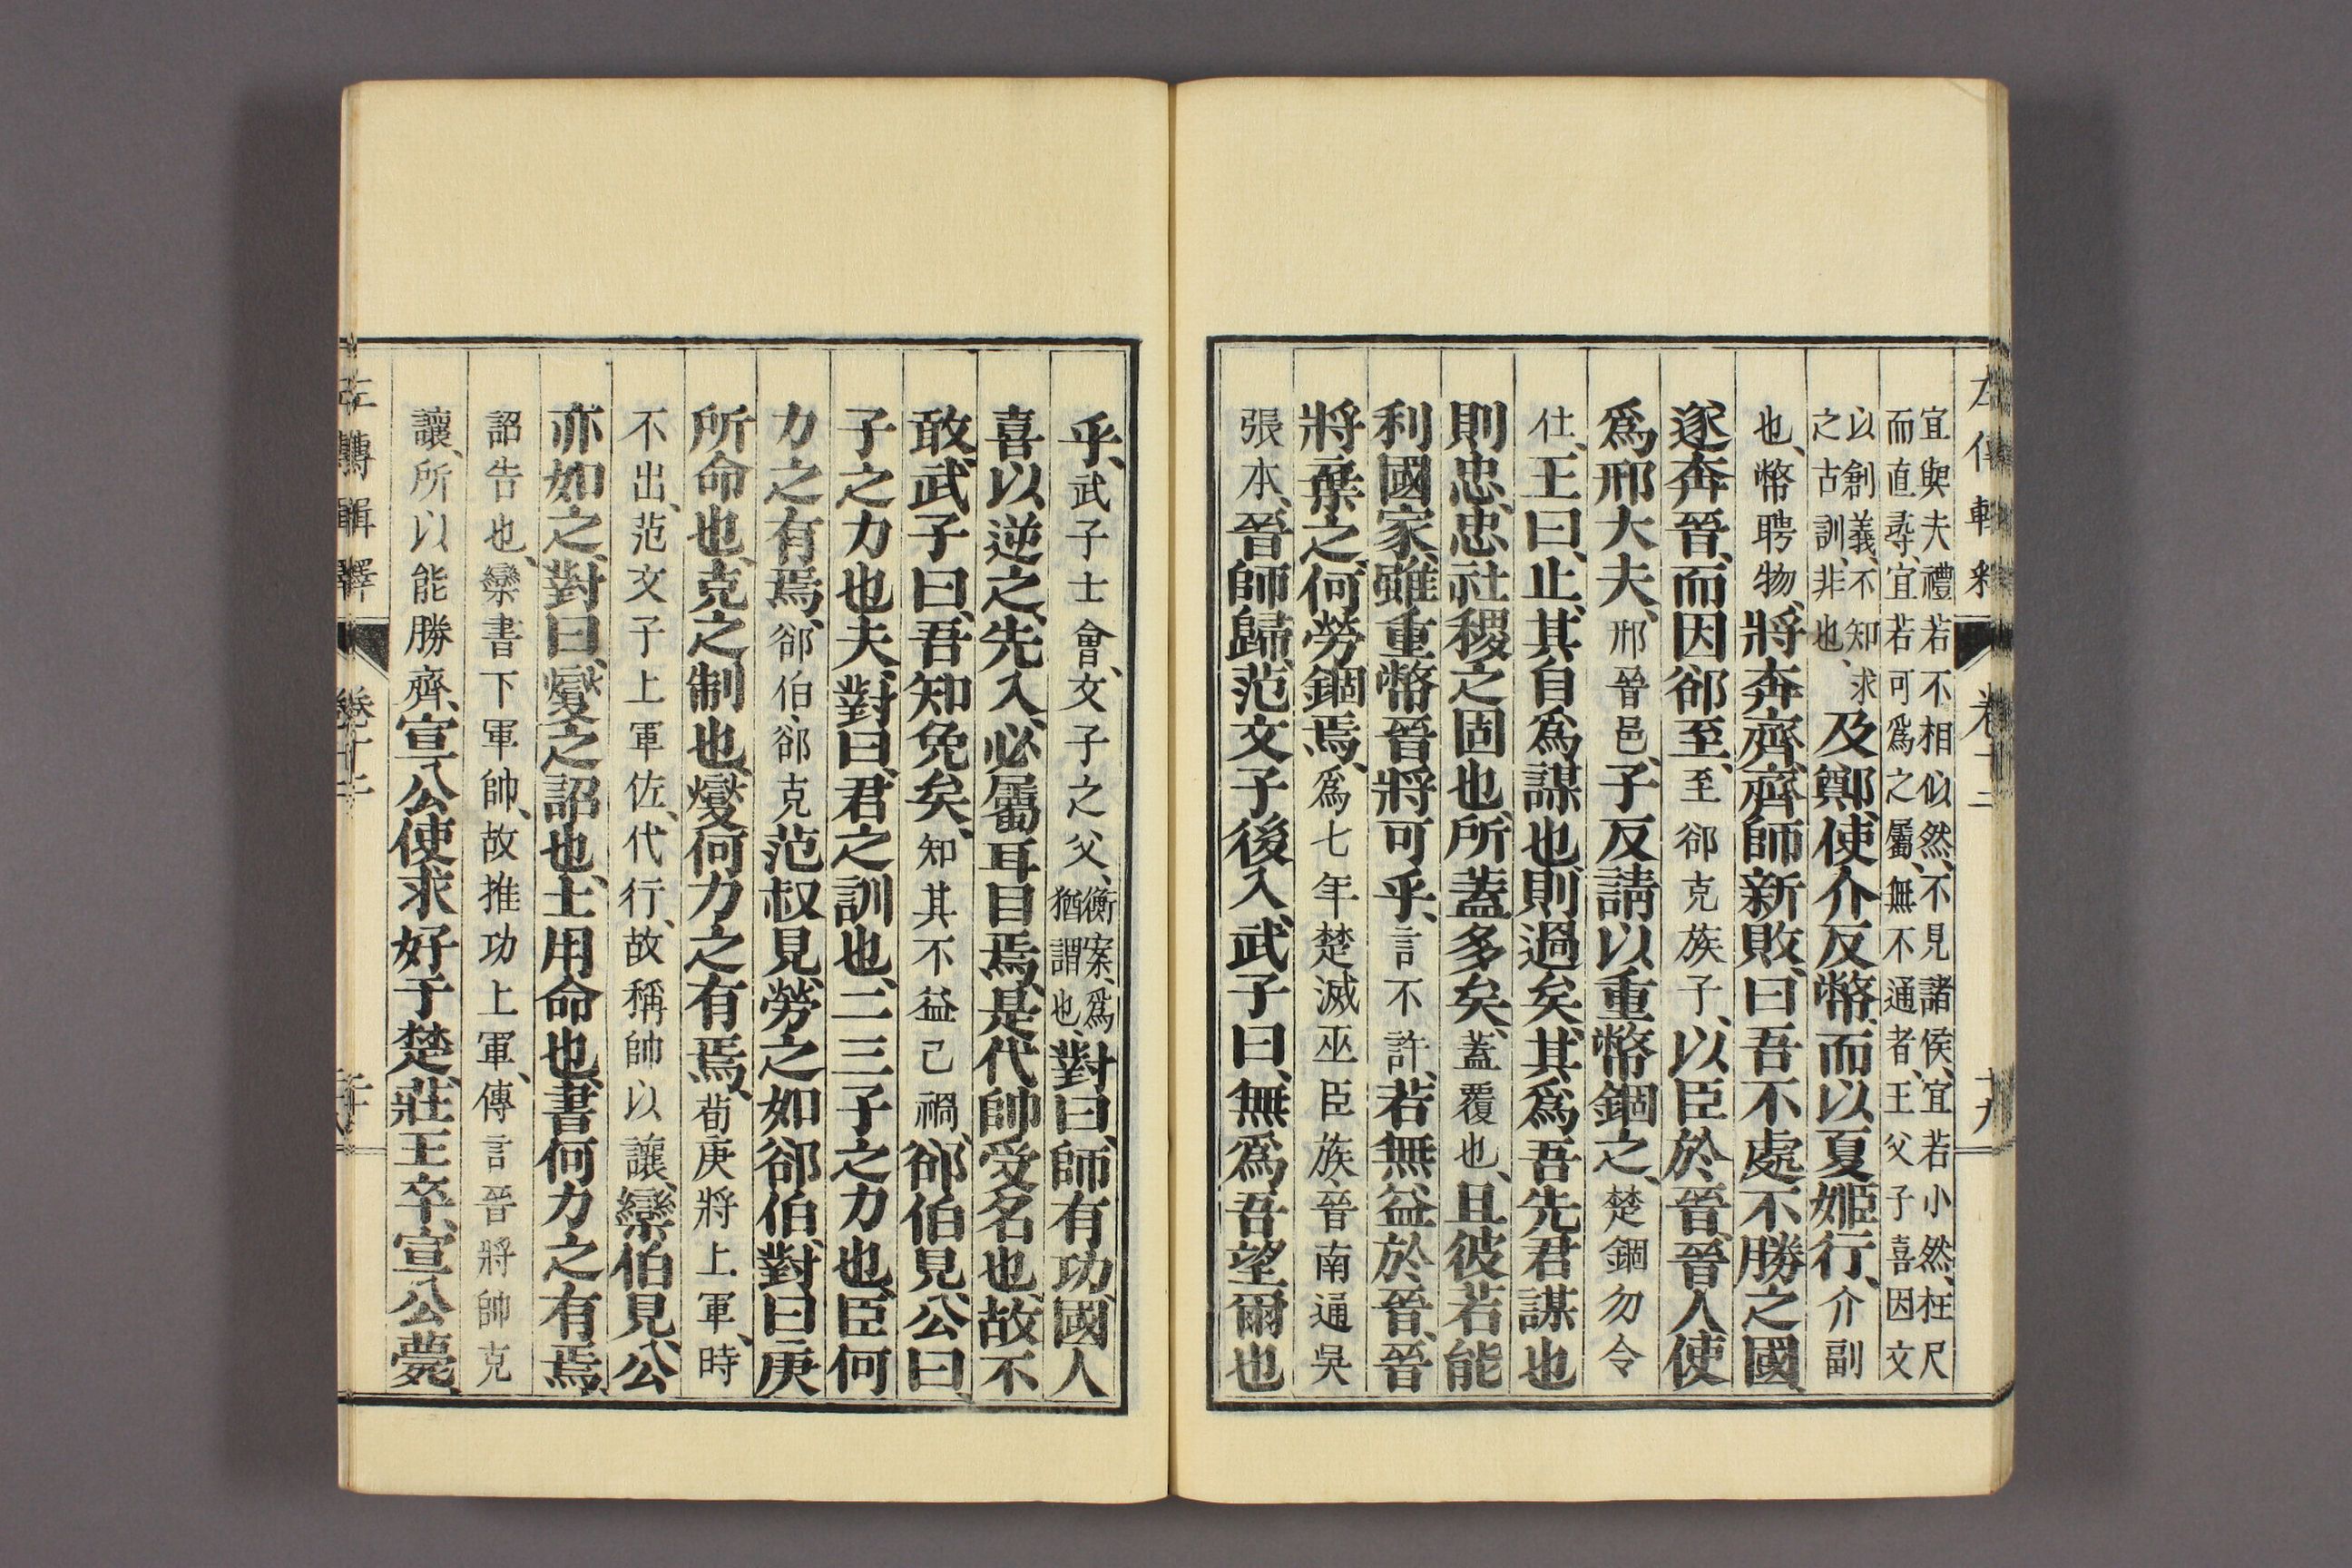 宜與夫禮若不相似然、不見諸侯、宜若小然、枉尺
而直尋、宜若可爲之屬、無不通者、王父子喜因文
以創義、不知求
之古訓、非也、
及鄭、使介反幣、而以夏姬行、介副
也、幣聘物、將奔齊、齊師新敗、曰吾不處不勝之國、
遂奔晉、而因郤至、至郤克族子、以臣於晉、晉人使
爲邢大夫、邢晉邑、子反請以重幣錮之、楚錮勿令
仕、王曰、止、其自爲謀也、則過矣、其爲吾先君謀也
則忠、忠、社稷之固也、所蓋多矣、蓋覆也、且彼若能
利國家、雖重幣、晉將可乎、言不許、若無益於晉、晉
將棄之、何勞錮焉、爲七年楚滅巫臣族、晉南通吳
張本、晉師歸、范文子後入、武子曰、無爲吾望爾也
乎、武子士會、文子之父、
衡案、爲
猶謂也、
對曰、師有功、國人
喜以逆之、先入、必屬耳目焉、是代帥受名也、故不
敢、武子曰、吾知免矣、知其不益己禍、郤伯見、公曰、
子之力也夫、對曰、君之訓也、二三子之力也、臣何
力之有焉、郤伯、郤克范叔見、勞之如郤伯、對曰、庚
所命也、克之制也、燮何力之有焉、荀庚將上軍、時
不出、范文子上軍佐、代行、故稱帥以讓、欒伯見、公
亦如之、對曰、燮之詔也、士用命也、書何力之有焉、
詔告也、欒書下軍帥、故推功上軍、傳言晉將帥克
讓、所以能勝齊、宣公使求好于楚、莊王卒、宣公薨、
左傳輯釋 卷十二